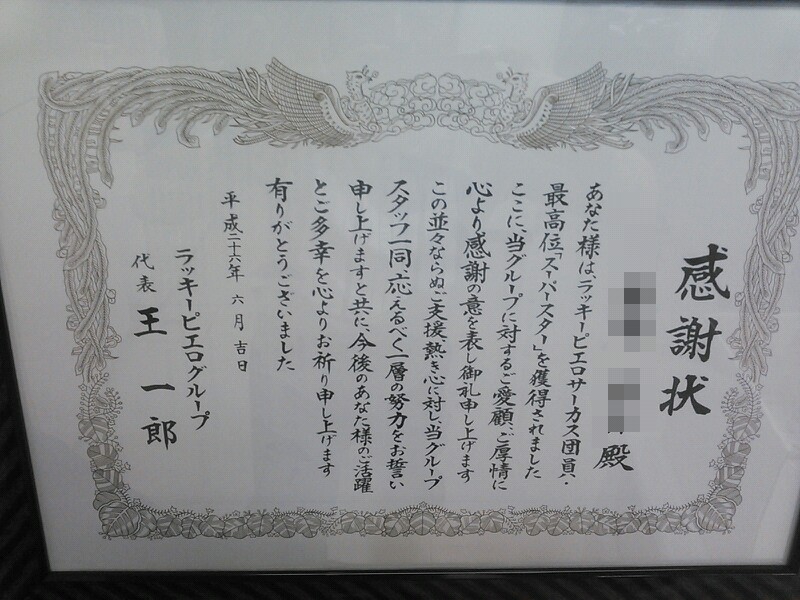 感謝状
殿
あなた様は、ラッキーピエロサーカス団員・
最高位「スーパースター」を獲得されました
ここに、当グループに対するご愛顧、ご厚情に
心より感謝の意を表し御礼申し上げます
この並々ならぬご支援、熱き心に対し、当グループ
スタッフ一同、応えるべく一層の努力をお誓い
申し上げますと共に、今後のあなた様のご活躍
とご多幸を心よりお祈り申し上げます
有りがとうございました
平成二十六年 六月 吉日
ラッキーピエログループ
代表 王 一郎